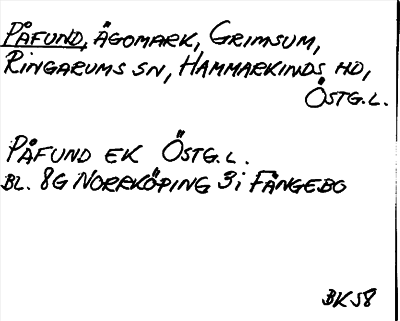 PÅFUND, ÄGOMARK, GRIMSUM,
RINGARUMS SN, HAMMARKINDS HD,
ÖSTG.L.
PÅFUND EK ÖSTG.L.
BL. 8G NORRKÖPING 3i FÅNGEBO
BK58